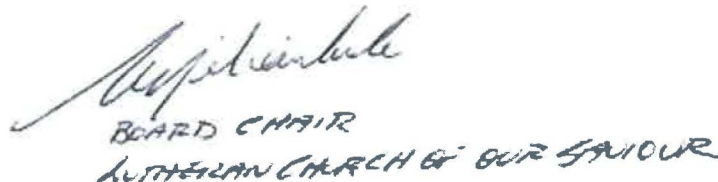 BOARD CHAIR
LUTHERAN CHURCH OF OUR SAVIOUR